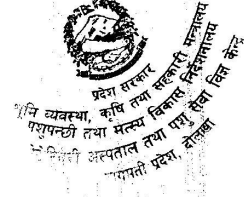 प्रदेश सरकार
भूमि व्यवस्था, कृषि तथा सहकारी मन्त्रालय
पशुपन्छी तथा मत्स्य विकास निर्देशनालय
अस्पताल तथा पशु सेवा विज्ञ केन्द्र
प्रदेश, दोलखा